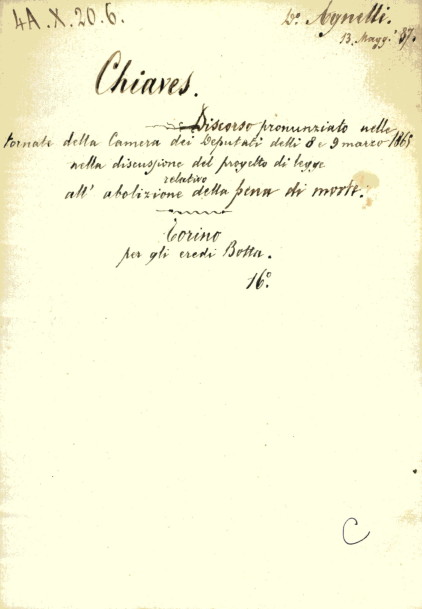 4A.X.20.6.
Do. Agnelli.
13. Magg. 87.
Chiaves.
Discorso pronunziato nelle
tornate della Camera dei Deputati delli 8 e 9 marzo 1865
nella discussione del progetto di legge
relativo
all' abolizione della pena di morte.
Torino
per gli eredi Botta.
16.º
C